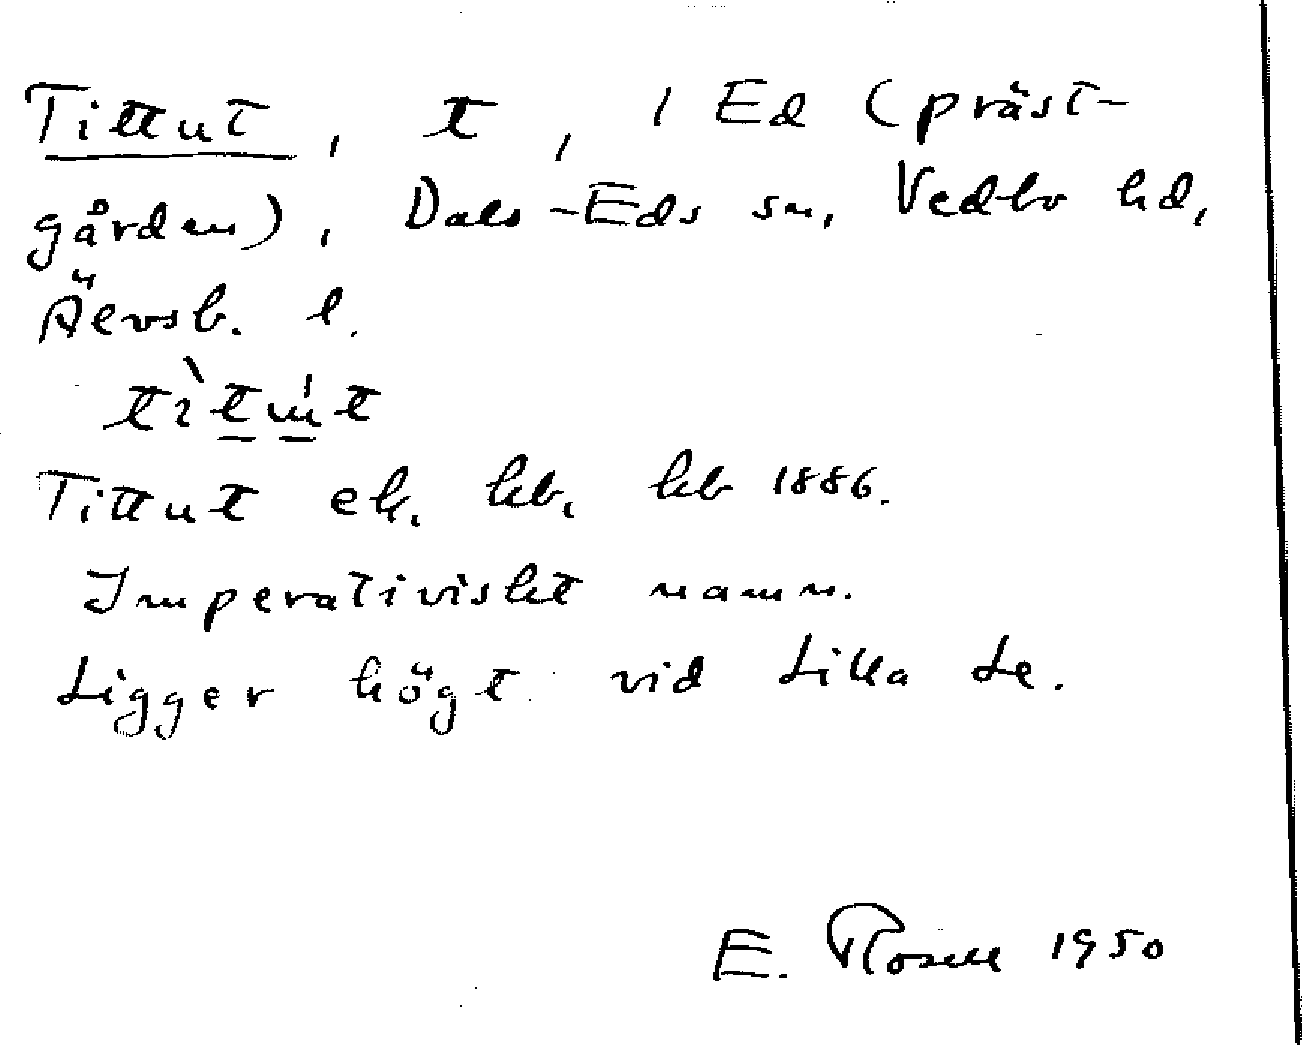 Tittut, t, / Ed (präst-
gården), Dals-Eds sn, Vedbo hd,
Älvsb. l.
tìtút
Tittut ek. kb. kb 1886.
Imperativiskt namn.
Ligger högt vid Lilla Le.
E. Rosell 1950